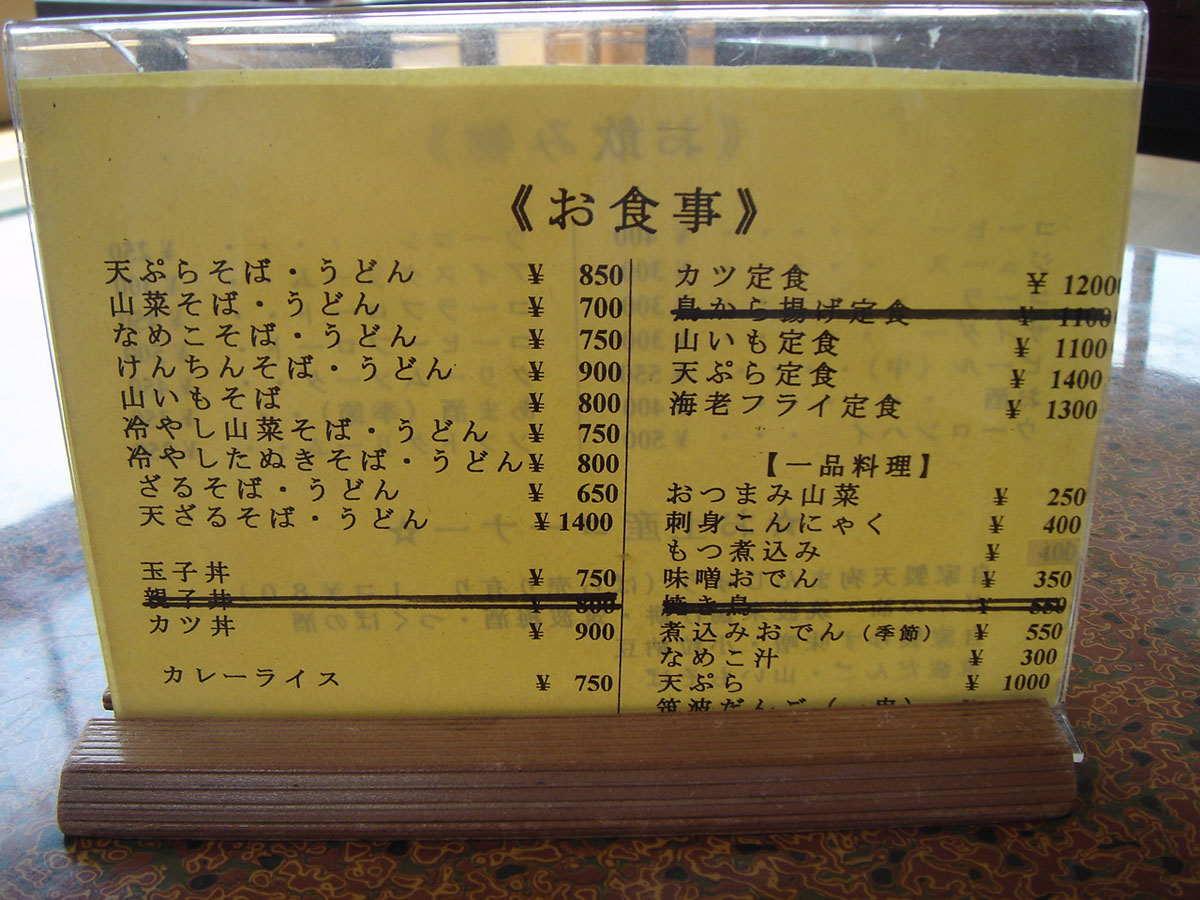 《お食事》
天ぷらそば・うどん ¥ 850
山菜そば・うどん ¥ 700
なめこそば・うどん ¥ 750
けんちんそば・うどん ¥ 900
山いもそば ¥ 800
冷やし山菜そば・うどん ¥ 750
冷やしたぬきそば・うどん ¥ 800
ざるそば・うどん ¥ 650
天ざるそば・うどん ¥ 1400
玉子丼 ¥ 750
親子丼 ¥ 800
カツ丼 ¥ 900
カレーライス ¥ 750
カツ定食 ¥ 12000
鳥から揚げ定食 ¥ 1100
山いも定食 ¥ 1100
天ぷら定食 ¥ 1400
海老フライ定食 ¥ 1300
【一品料理】
おつまみ山菜 ¥ 250
刺身こんにゃく ¥ 400
もつ煮込み ¥ 400
味噌おでん ¥ 350
焼き鳥 ¥ 550
煮込みおでん(季節) ¥ 550
なめこ汁 ¥ 300
天ぷら ¥ 1000
筑波だんご(一串)